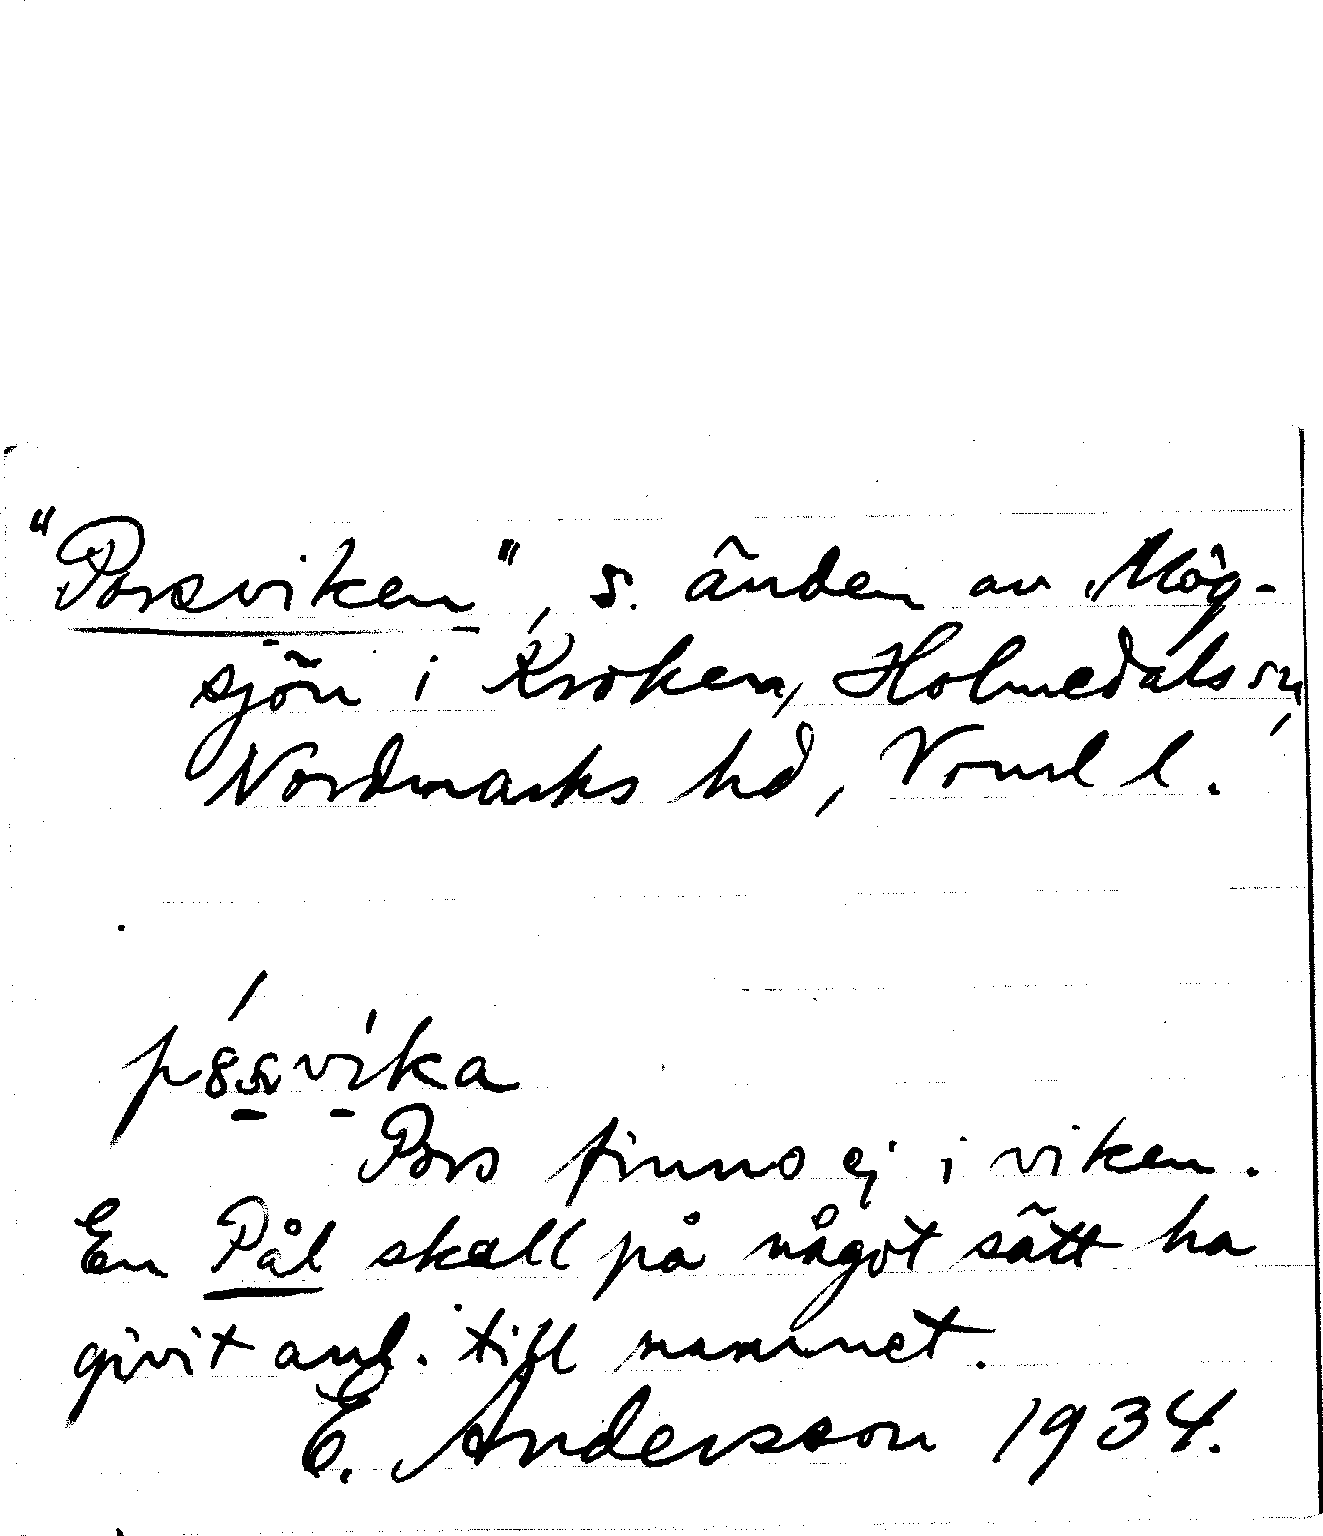 "Porsviken", s. änden av Mög-
sjön i Kroken, Holmedals sn,
Nordmarks hd, Vrml l.
Pors finns ej i viken.
En Pål skall på något sätt ha
givit anl. till namnet.
E. Andersson 1934.